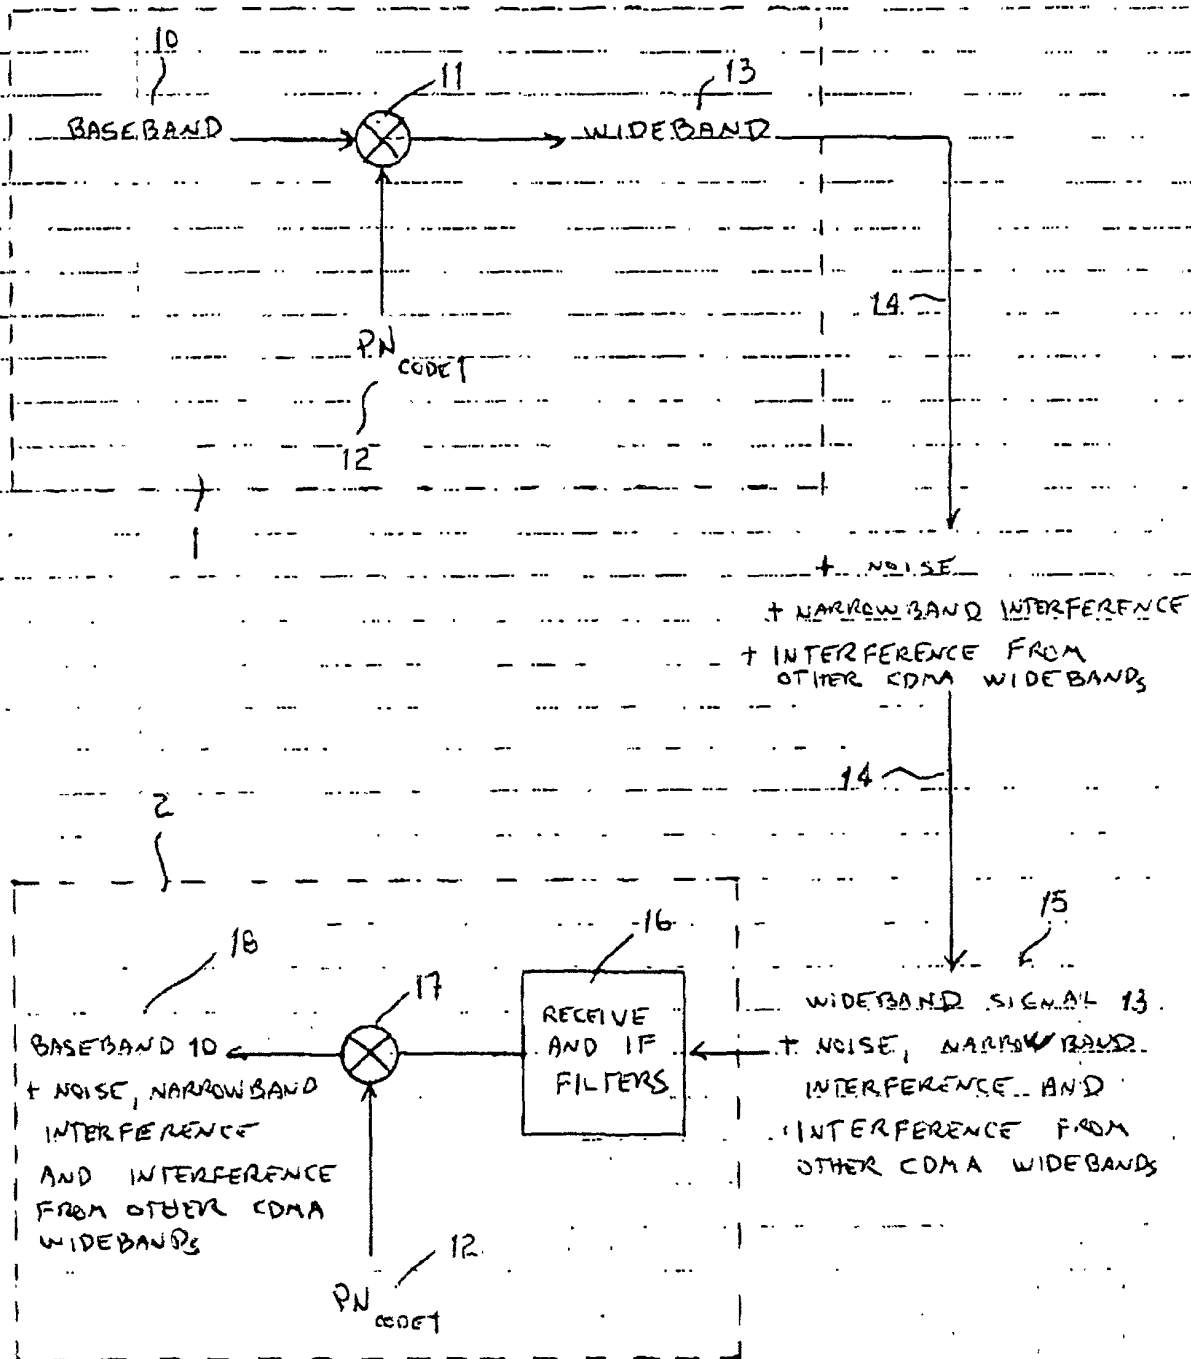 10
11
13
BASEBAND
WIDEBAND
14
PN CODE1
12
1
+ NOISE
+ NARROWBAND INTERFERENCE
+ INTERFERENCE FROM
OTHER CDMA WIDEBANDS
14
2
15
16
18
17
WIDEBAND SIGNAL 13
+ NOISE, NARROWBAND
INTERFERENCE AND
INTERFERENCE FROM
OTHER CDMA WIDEBANDS
RECEIVE
AND IF
FILTERS
BASEBAND 10
+ NOISE, NARROWBAND
INTERFERENCE
AND INTERFERENCE
FROM OTHER CDMA
WIDEBANDS
12
PN CODE1